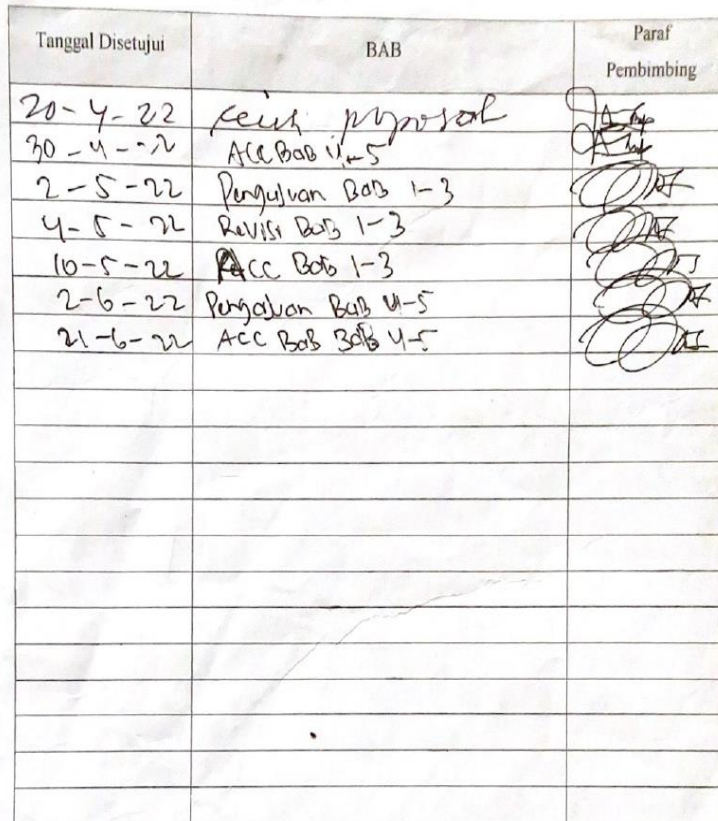 Tanggal Disetujui BAB Paraf Pembimbing
20-4-22 proposal
30-4-22 ACC BAB 5
2-5-22 Pengajuan BAB 1-3
4-5-22 Revisi BAB 1-3
10-5-22 ACC BAB 1-3
2-6-22 Pengajuan BAB 4-5
21-6-22 ACC BAB BAB 4-5